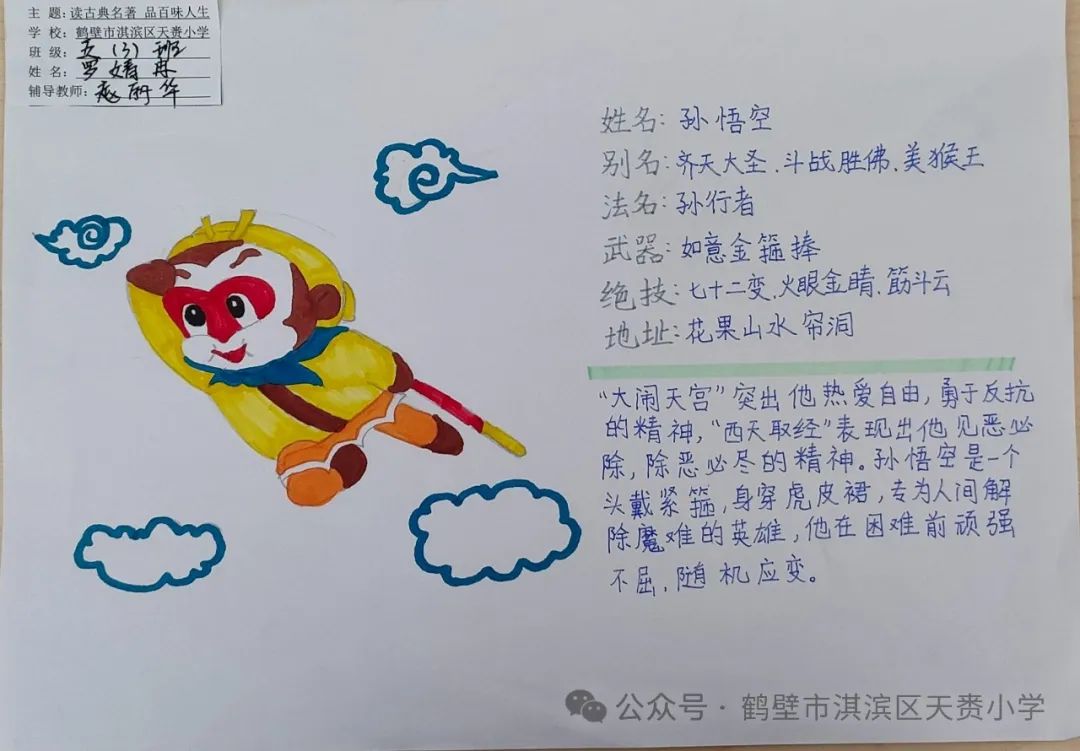 主 题:读古典名著 品百味人生
学 校:鹤壁市淇滨区天赉小学
班 级:五(3)班
姓 名:罗婧冉
辅导教师:赵丽华
姓名:孙悟空
别名:齐天大圣.斗战胜佛.美猴王
法名:孙行者
武器:如意金箍捧
绝技:七十二变.火眼金睛.筋斗云
地址:花果山水帘洞
“大闹天宫”突出他热爱自由,勇于反抗
的精神,“西天取经”表现出他见恶必
除,除恶必尽的精神。孙悟空是一个
头戴紧箍,身穿虎皮裙,专为人间解
除魔难的英雄,他在困难前顽强
不屈,随机应变。
公众号·鹤壁市淇滨区天赉小学